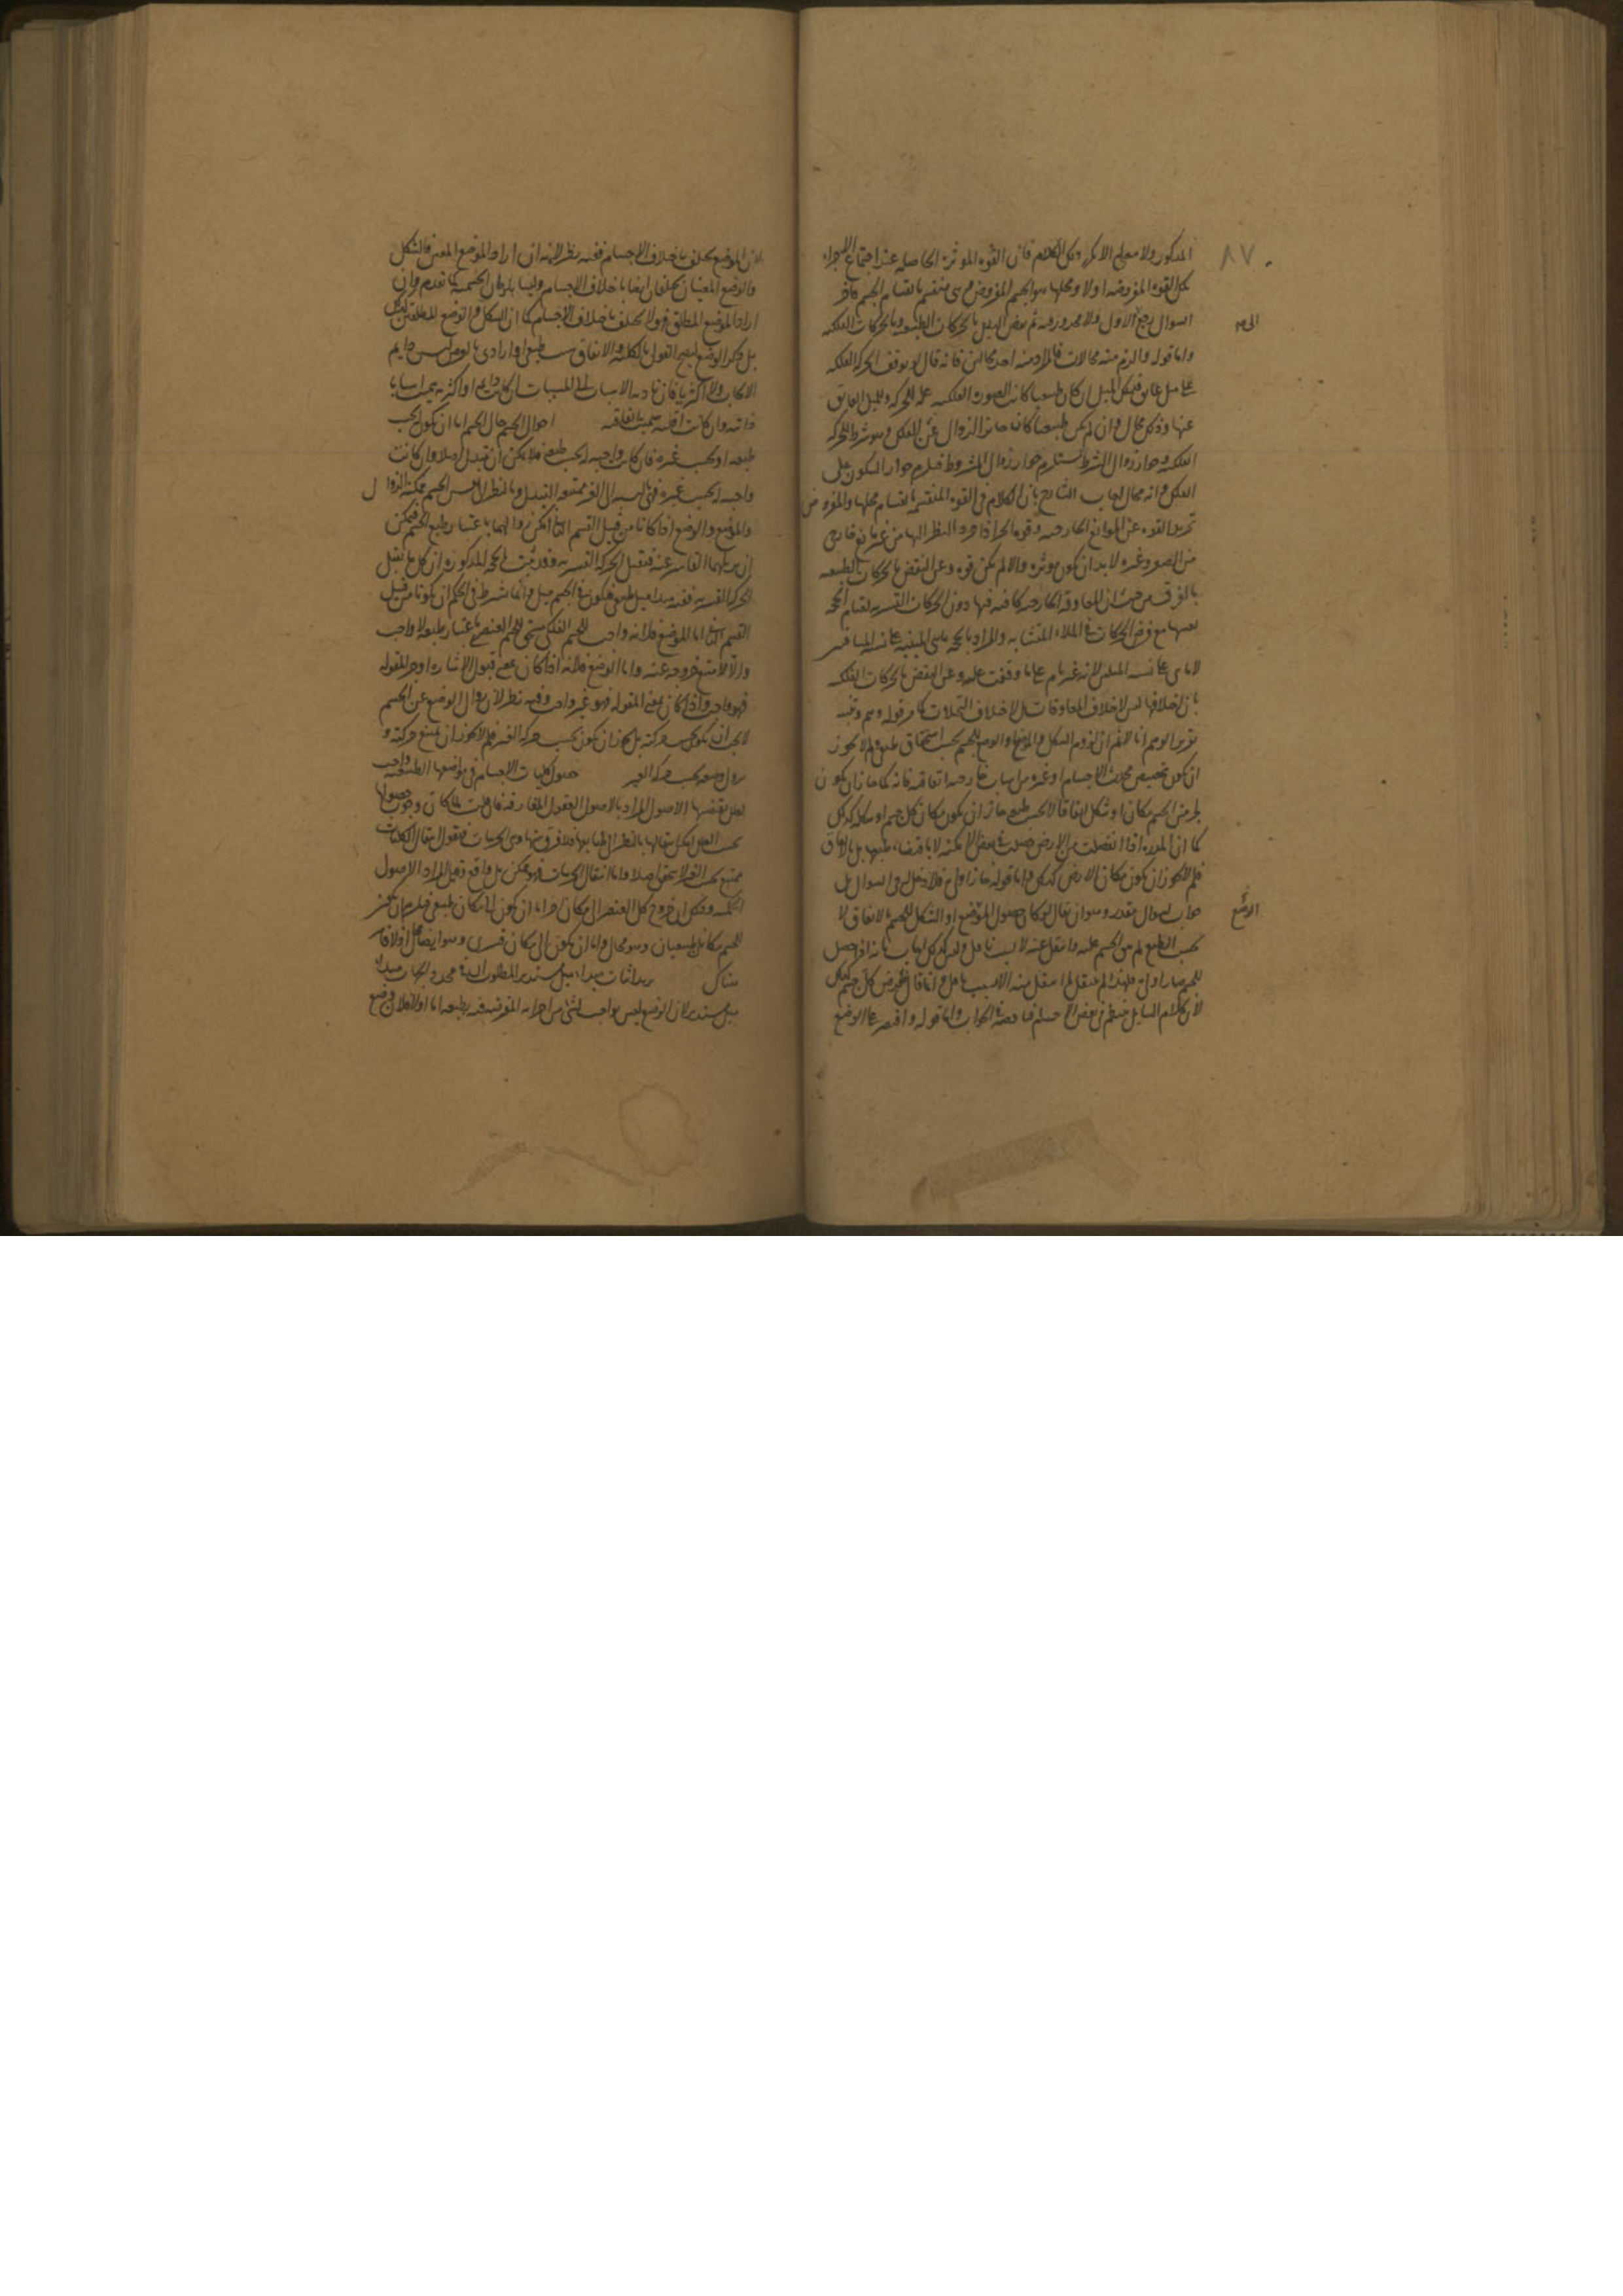 ٨٧
المذكور ولا معول الا لكن ذلك الكلام فان القوة المؤثرة الحاصلة عند اجتماع الاجزاء
تلك القوة المفروضة اولا ومحلها هو الجسم المفروض وهي تنقسم بانقسام الجسم فآخر
السوال يرفع الاول ولا محذور فيه ثم نقض الدليل بالحركات الطبيعية وبالحركات الفلكية
واما قوله والزم منه محالات فالمراد منه احد محالين فانه قال لو توقف الحركة الفلكية
على ميل عايق فذلك الميل ان كان طبيعيا كانت الصورة الفلكية علة للحركة وللميل العايق
عنها وذلك محال وان لم يكن طبيعيا كان جايز الزوال عن الفلك وهو شرط للحركة
الفلكية وجواز زوال الشرط يستلزم جواز زوال المشروط فيلزم جواز السكون على
الفلك وانه محال اجاب الشارح بان الكلام في القوة المنقسمة بانقسام محلها والمفروض
تجريد القوة عن الموانع الخارجية وقوة الجزء اذا جرد النظر اليها من غير مانع خارجي
من الصور وغيره لا بد ان يكون مؤثرة والا لم يكن قوة وعن النقض بالحركات الطبيعية
بالفرق من حيث ان المعاوقة الخارجية كافية فيها دون الحركات القسرية لقيام الحجة
بعينها مع فرض الحركات في الملاء المتشابه والمراد بالحجة ما هي المبنية على نسبة المسافتين
لا ما هي على نسبة الميلين لانه غير تام على ما وقفت عليه وعن النقض بالحركات الفلكية
بان اختلافها ليس لاختلاف المعاوقات بل لاختلاف التخيلات كما مر قوله وهم وتنبيه
تقرير الوهم انا لا نم ان لزوم الشكل والموضع او الوضع للجسم بحسب استحقاق طبعه لم لا يجوز
ان يكون تخصيص محدث الاجسام او غيره من اسباب خارجية اتفاقية فانه كما جاز ان يكون
لجزء من الجسم مكان او شكل اتفاقا لا بحسب طبعه جاز ان يكون مكان كل جسم او شكله كذلك
كما ان المدرة اذا انفصلت من الارض حصلت في بعض الامكنة لا باقتضاء طبعها بل بالاتفاق
فلم لا يجوز ان يكون مكان الارض كذلك واما قوله جاز اولى فلا دخل له في السوال بل
جواب لسوال مقدر وهو ان يقال لو كان حصول الموضع او الشكل للجسم بالاتفاق لا
بحسب الطبع لم
لان كلام السايل في بعض الاجسام واما قوله واقتصر على الوضع
لان الموضع يختلف باختلاف الاجسام ففيه نظر لانه ان اراد الموضع المعين فالشكل
والوضع المعينان يختلفان ايضا باختلاف الاجسام وليسا يلزمان الجسمية كما تقدم وان
اراد الموضع المطلق فهو لا يختلف باختلاف الاجسام كما ان الشكل والوضع المطلقين كذلك
بل ذكر الوضع ليصح القول بالكلية والاتفاق سبب طبيعي او ارادي بالعرض ليس دايم
الايجاب ولا اكثريا فان تادية الاسباب الى المسببات ان كانت دايمة او اكثرية سميت اسبابا
ذاتية وان كانت اقلية سميت اتفاقية احوال الجسم حال الجسم اما ان يكون بحسب
طبعه او بحسب غيره فان كانت واجبة بحسب طبعه فلا يمكن ان تتبدل اصلا وان كانت
واجبة بحسب غيره فهي بالنسبة الى الغير ممتنعة التبدل وبالنظر الى نفس الجسم ممكنة الزوال
والموضع والوضع اذا كانا من قبيل القسم الثاني امكن زوالهما باعتبار طبع الجسم فيمكن
ان يزيلهما القاسر عنه فيقبل الحركة القسرية وقد ثبت في الحجة المذكورة ان كل ما يقبل
الحركة القسرية ففيه مبدا ميل طبيعي فيكون في الجسم ميل وانما شرط في الحكم ان يكونا من قبيل
القسم الثاني اما الموضع فلانه واجب للجسم الفلكي مستحق للجسم العنصري باعتبار طبعه لا واجب
والا لامتنع خروجه عنه واما الوضع فلانه اذا كان بمعنى قبول الاشارة او جزء المقولة
فهو واجب واذا كان بمعنى المقولة فهو غير واجب وفيه نظر لان زوال الوضع عن الجسم
لا يجب ان يكون بحسب حركته بل يجوز ان يكون بحسب حركة الغير فلم لا يجوز ان يمتنع حركته و
يزول وضعه بحسب حركة الغير حصول كليات الاجسام في مواضعها الطبيعية واجب
لعلل يقتضيها الاصول المراد بالاصول العقول المفارقة فان قلت لما كان وجوب حصولها
بحسب العلل امكن انتقالها بالنظر الى طبايعها فلا فرق بينها وبين الجزئيات فنقول انتقال الكليات
ممتنع بحسب الغير لا يتحقق اصلا واما انتقال الجزئيات فهو ممكن بل واقع وقيل المراد الاصول
الحكمية وذلك ان خروج كل العنصر الى مكان آخر اما ان يكون الى مكان طبيعي فيلزم ان يكون
للجسم مكانان طبيعيان وهو محال واما ان يكون الى مكان قسري وهو ايضا محال اذ لا قاسر
هناك يريد اثبات مبدا ميل مستدير المطلوب ان في محدد الجهات مبدا
ميل مستدير لان الوضع ليس بواجب لشيء من اجزائه المفروضة فيه بطبعه اما اولا فلان وضع
الوضع